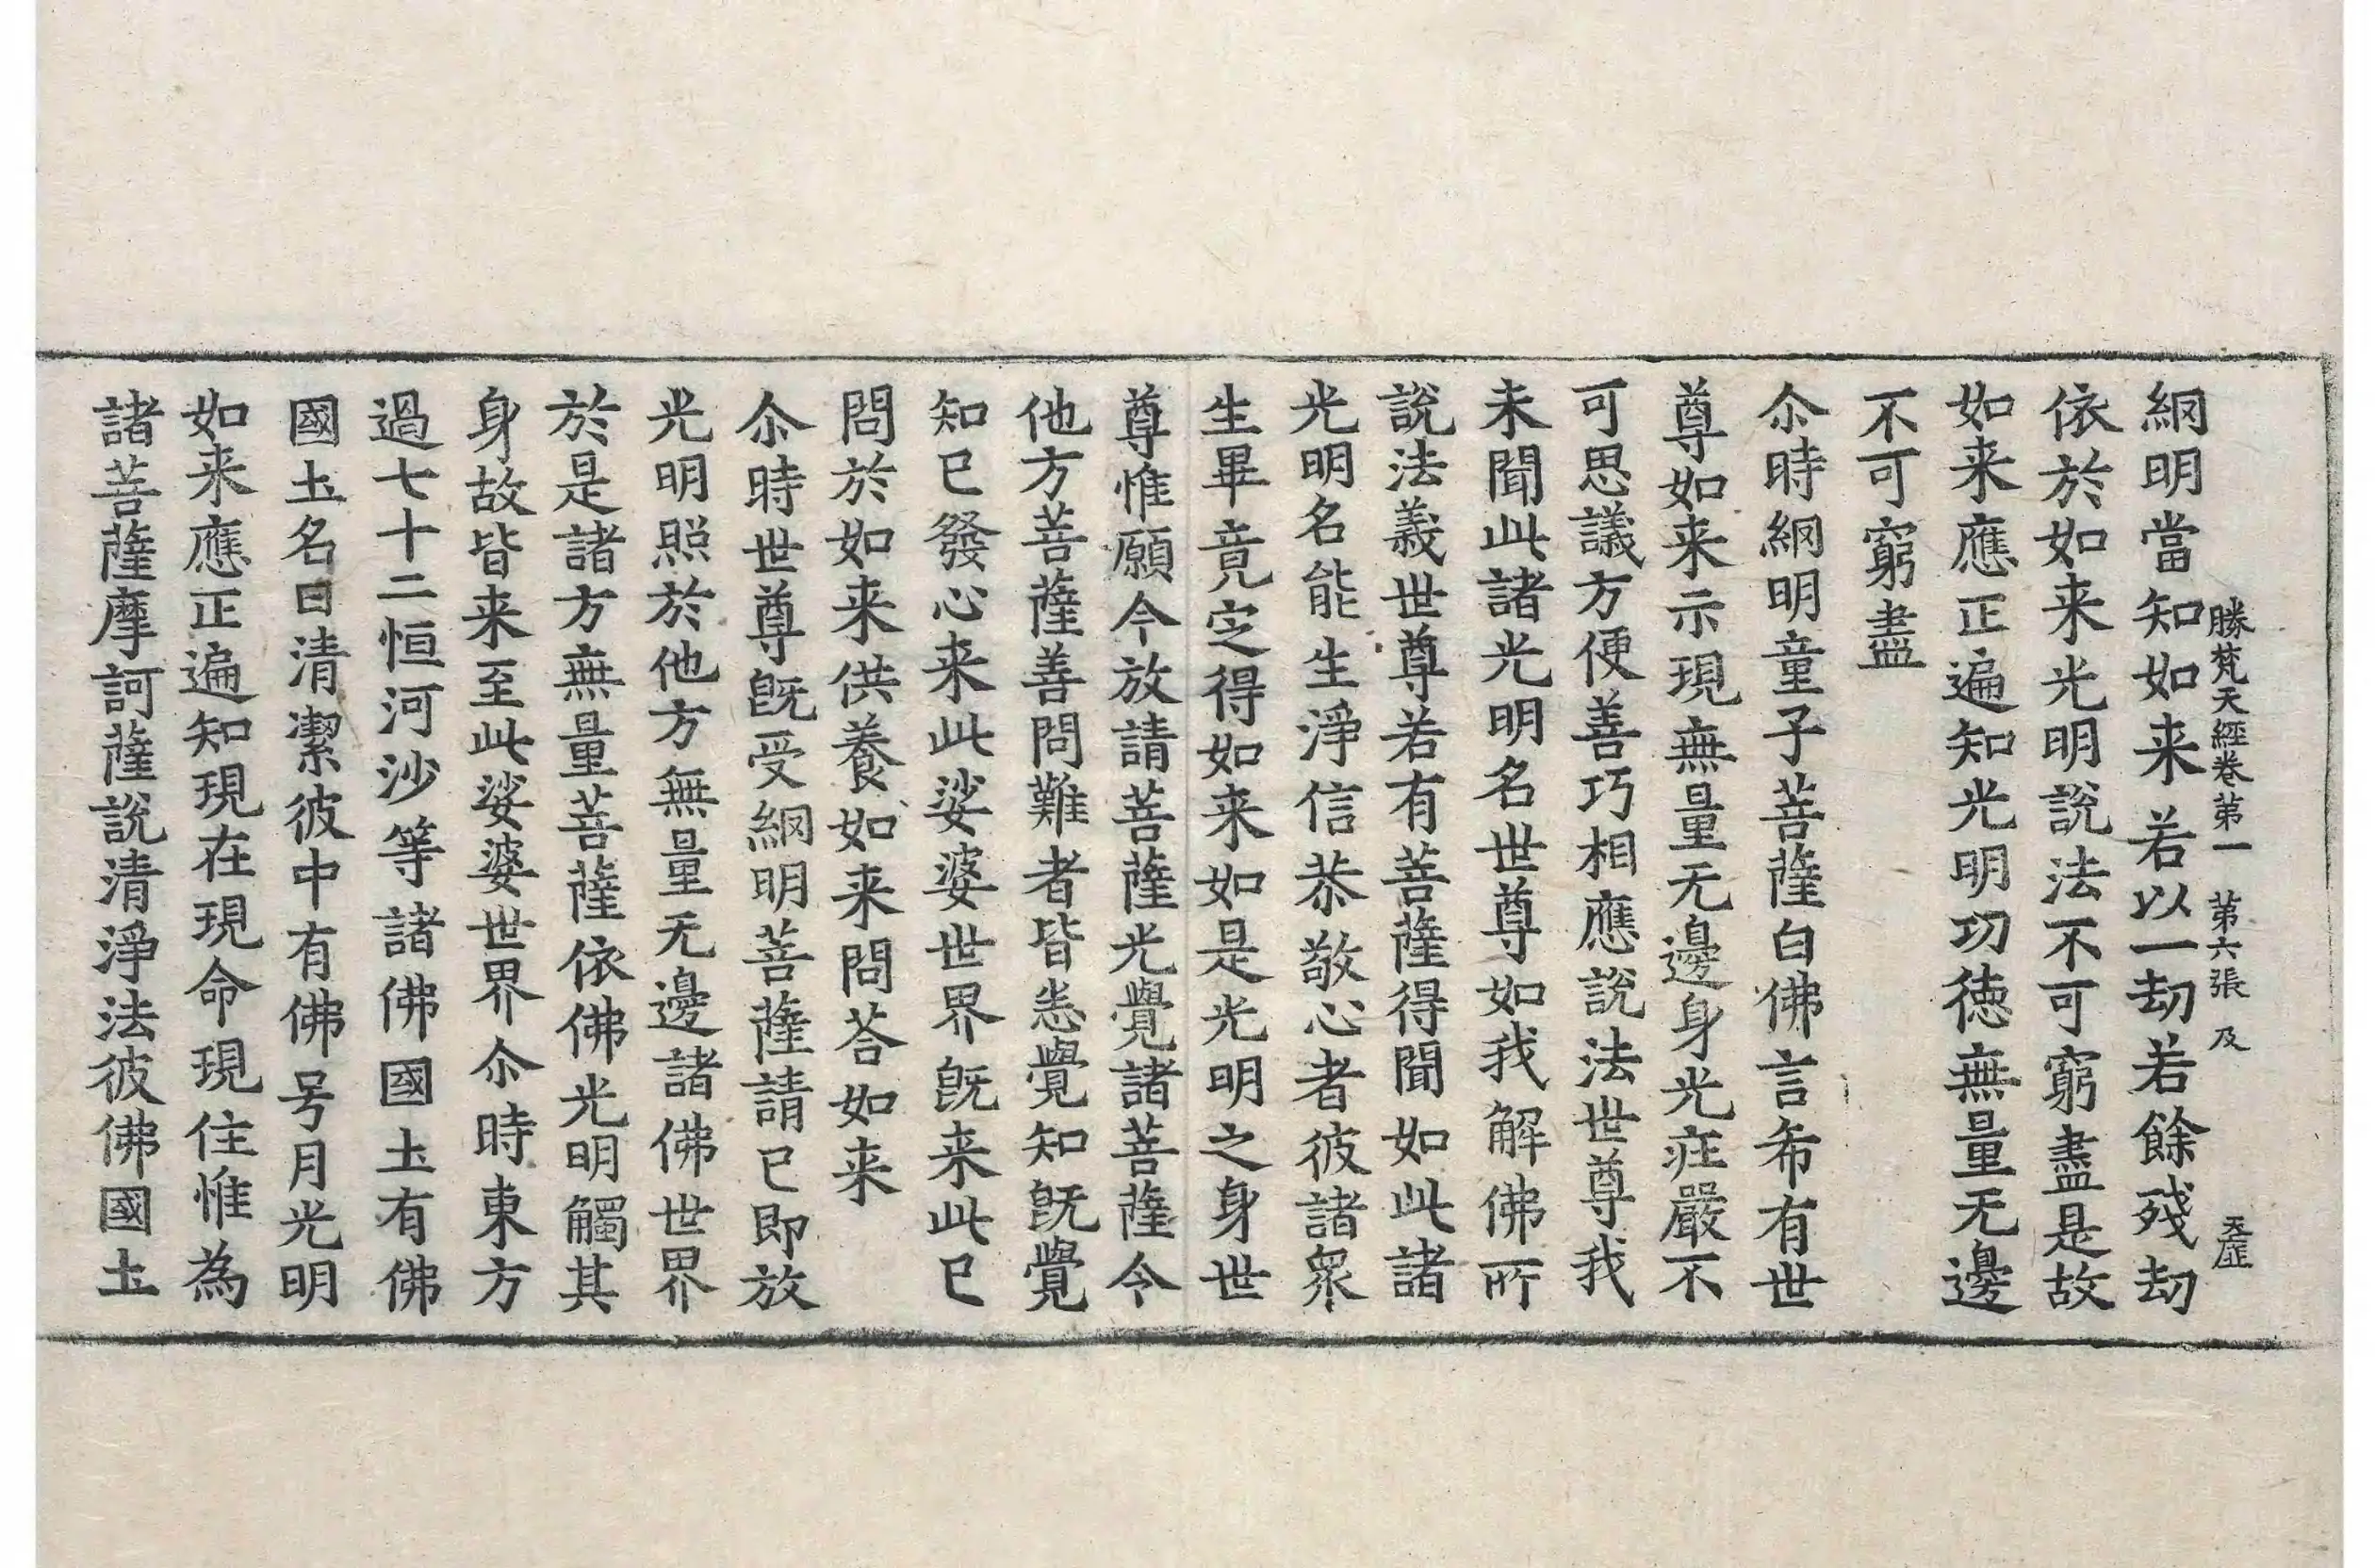 勝梵天經卷第一 第六張 及 天虛
䋄明當知如来若以一劫若餘殘劫
依於如来光明說法不可窮盡是故
如来應正遍知光明功徳無量无邊
不可窮盡
尒時䋄明童子菩薩白佛言希有世
尊如来示現無量无邊身光㽵嚴不
可思議方便善巧相應說法世尊我
未聞此諸光明名世尊如我解佛所
說法義世尊若有菩薩得聞如此諸
光明名能生淨信恭敬心者彼諸衆
生畢竟㝎得如来如是光明之身世
尊惟願今放請菩薩光覺諸菩薩今
他方菩薩善問難者皆悉覺知旣覺
知已發心来此娑婆世界旣来此已
問於如来供養如来問荅如来
尒時世尊旣受䋄明菩薩請已即放
光明照於他方無量无邊諸佛世界
於是諸方無量菩薩依佛光明觸其
身故皆来至此娑婆世界尒時東方
過七十二恒河沙等諸佛國土有佛
國土名曰清潔彼中有佛号月光明
如来應正遍知現在現命現住惟為
諸菩薩摩訶薩說清淨法彼佛國土